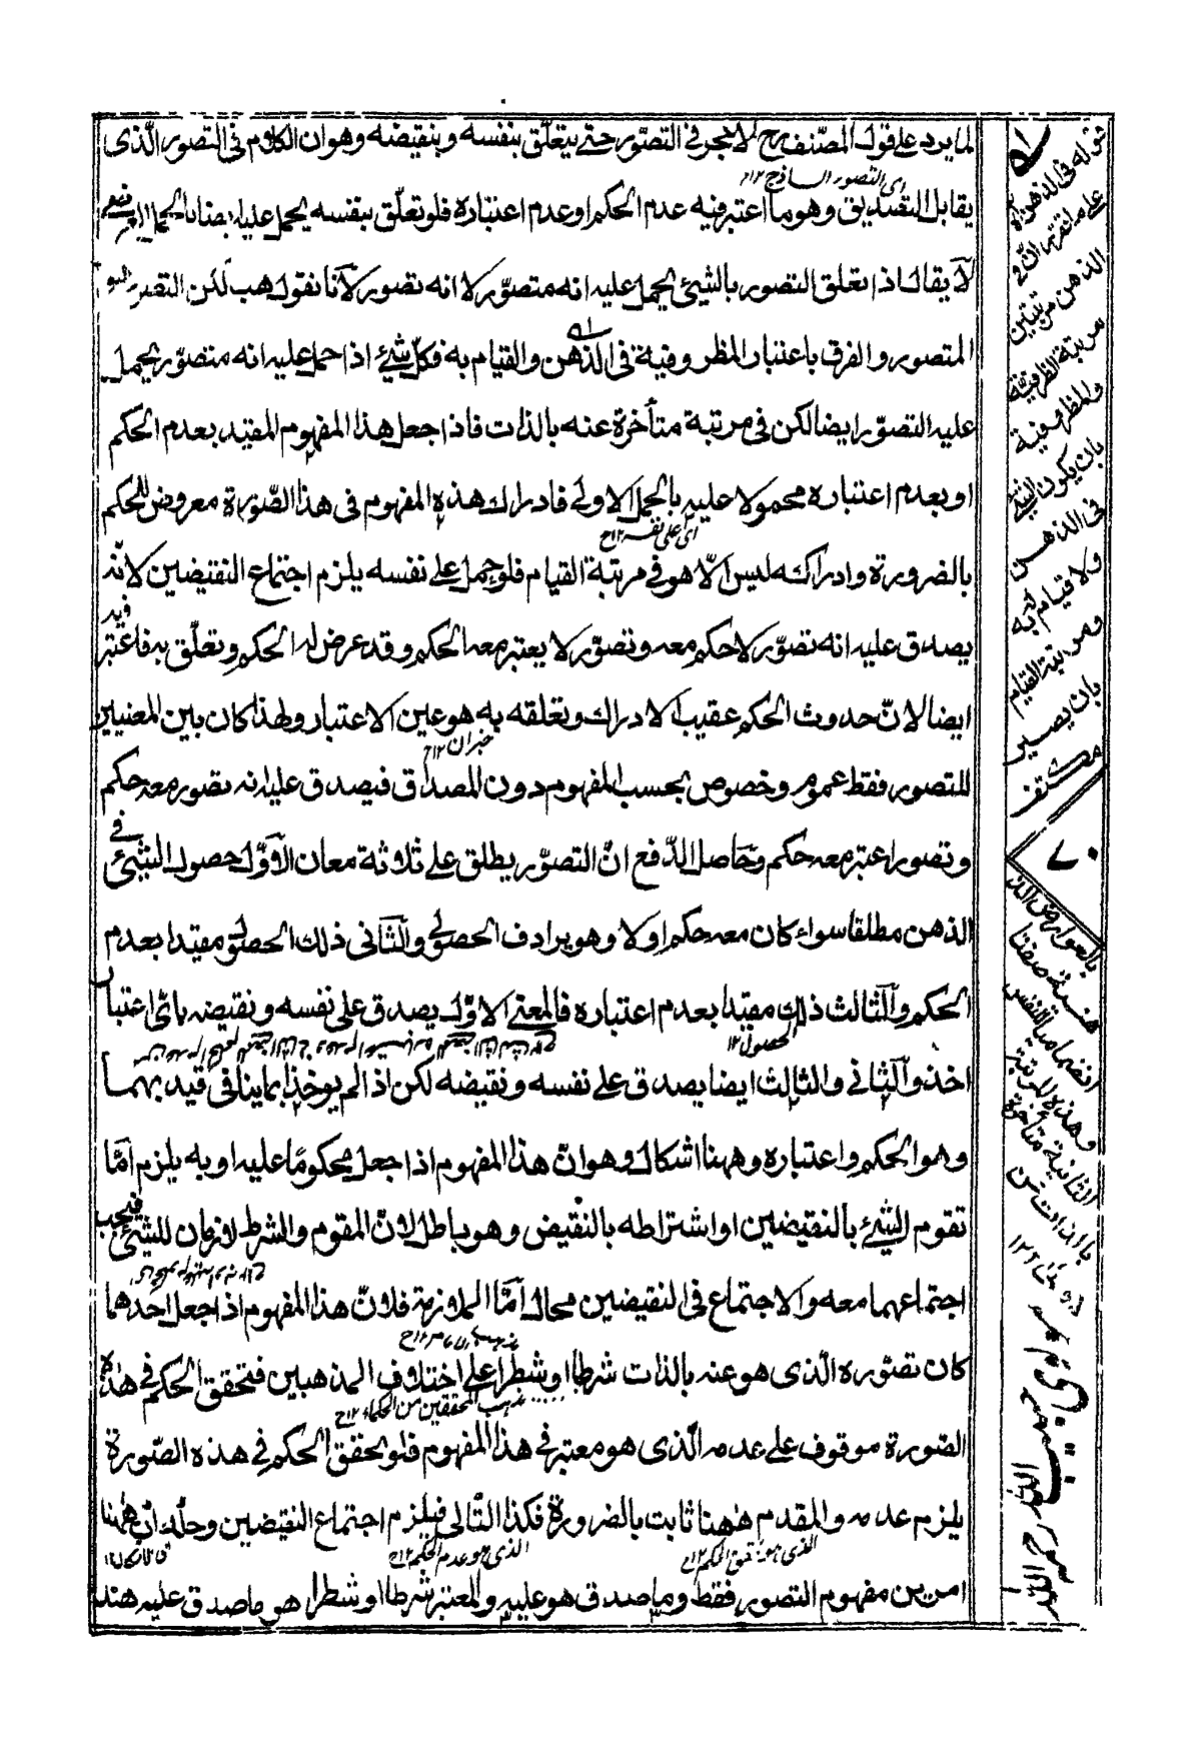 لما يرد على قول المصنف رح لا حجر فى التصور حتى يتعلق بنفسه وبنقيضه وهو ان الكلام فى التصور الذى
اى التصور الساذج ١٢
يقابل التصديق وهو ما اعتبر فيه عدم الحكم او عدم اعتباره فلو تعلق بنفسه يحمل عليه ايضا بالحمل
لا يقال اذا تعلق التصور بالشئ يحمل عليه انه متصور لا انه تصور لانا نقول هب لكن التصور
المتصور والفرق باعتبار المظروفية فى الذهن والقيام به فكل شئ اذا حمل عليه انه متصور يحمل
عليه التصور ايضا لكن فى مرتبة متأخرة عنه بالذات فاذا جعل هذا المفهوم المقيد بعدم الحكم
او بعدم اعتباره محمولا عليه بالحمل الاولى فادراك هذه المفهوم فى هذا الصورة معروض للحكم
اى على نفسه ١٢ ح
بالضرورة وادراكه ليس الا هو فى مرتبة القيام فلو حمل على نفسه يلزم اجتماع النقيضين لانه
يصدق عليه انه تصور لا حكم معه وتصور لا يعتبر معه الحكم وقد عرض له الحكم وتعلق به فاعتبر فيه
ايضا لان حدوث الحكم عقيب الادراك وتعلقه به هو عين الاعتبار ولهذا كان بين المعنيين
خبر ان ١٢ ح
للتصور فقط عموم وخصوص بحسب المفهوم دون المصداق فيصدق عليه انه تصور معه حكم
وتصور اعتبر معه حكم وحاصل الدفع ان التصور يطلق على ثلاثة معان الاول حصول الشئ فى
الذهن مطلقا سواء كان معه حكم اولا وهو يرادف الحصولى والثانى ذلك الحصولى مقيدا بعدم
الحكم والثالث ذلك مقيدا بعدم اعتباره فالمعنى الاول يصدق على نفسه ونقيضه باى اعتبار
الحصول ١٢
اخذ والثانى والثالث ايضا يصدق على نفسه ونقيضه لكن اذا لم يوخذا بما ينافى قيد بهما
وهو الحكم واعتباره وههنا اشكال وهو ان هذا المفهوم اذا جعل محكوما عليه او به يلزم اما
تقوم الشئ بالنقيضين او اشتراطه بالنقيض وهو باطل لان المقوم والشرط لازمان للشئ فيجب
اجتماعهما معه والاجتماع فى النقيضين محال اما الملازمة فلان هذا المفهوم اذا جعل احدهما
كان تصوره الذى هو عنه بالذات شرطا او شطرا على اختلاف المذهبين فتحقق الحكم فى هذه
مذهب المحققين من الحكماء ١٢ ح
الصورة موقوف على عدمه الذى هو معتبر فى هذا المفهوم فلو تحقق الحكم فى هذه الصورة
يلزم عدمه والمقدم ههنا ثابت بالضرورة فكذا التالى فيلزم اجتماع النقيضين وحله ان ههنا
الذى هو تحقق الحكم ١٢ ح
الذى هو عدم الحكم ١٢ ح
امرين مفهوم التصور فقط وما صدق هو عليه والمعتبر شرطا او شطرا هو ما صدق عليه هذا
قوله فى الذهن
الذهن مرتبتين
مرتبة الظرفية
والمظروفية
بان يكون الشئ
فى الذهن
ولا قيام له به
ومرتبة القيام
بان يصير
٧٠
بالعوارض
وهذه المرتبة
الثانية متأخرة
بالذات عن